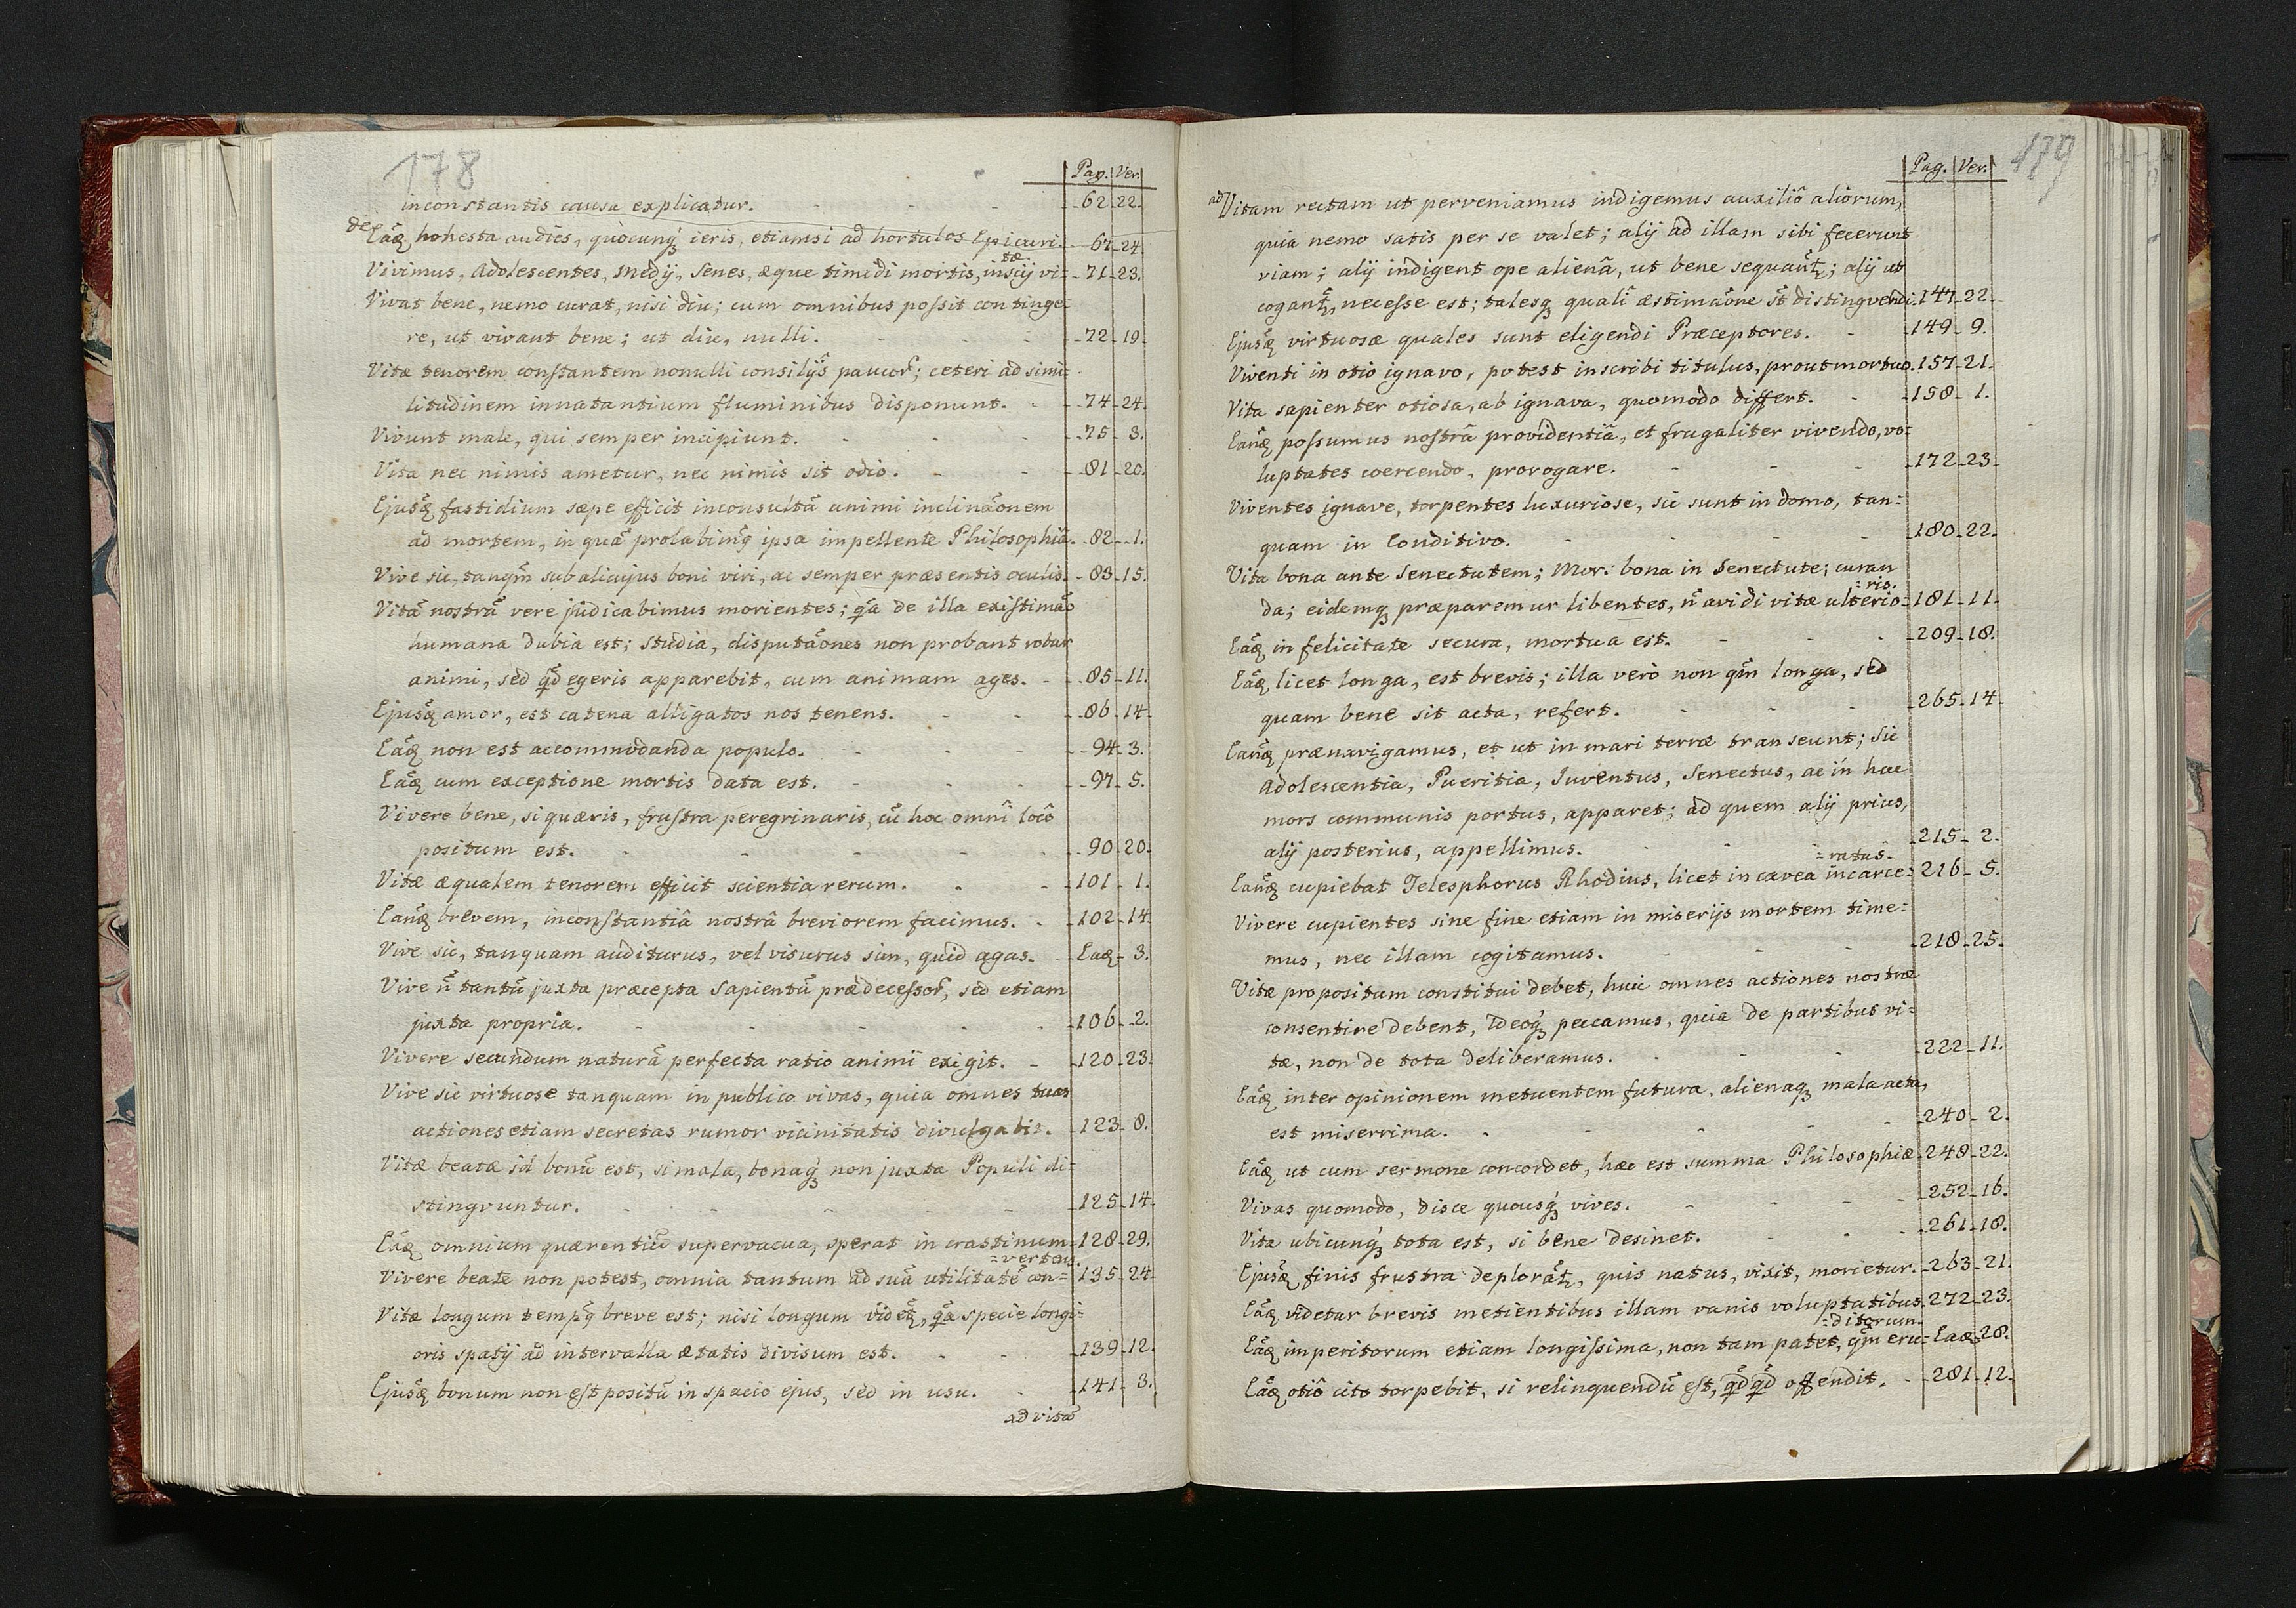 178
Pag. Ver.
inconstantis causa explicatur. 62. 22.
de Eâdẽ honesta audies, quòcunq́ ieris, etiamsi ad hortulos Epicuri. 67. 24.
Vivimus, Adolescentes, Medÿ, Senes, æque timidi mortis, inscÿ vi= 71. 23.
tæ.
Vivat bene, nemo curat, nisi diu; cum omnibus possit continge=
re, ut vivant bene; ut diu, nulli. 72. 19.
Vitæ tenorem constantem nonulli consilÿs paucor̃; ceteri ad simi=
litudinem innatantium fluminibus disponunt. 74. 24.
Vivunt male, qui semper incipiunt. 75. 3.
Vita nec nimis ametur, nec nimis sit odio. 81. 20.
Ejusq̃ fastidium sæpe efficit inconsultã animi inclinãonem
ad mortem, in quã prolabimq̃ ipsa impellente Philosophiâ. 82. 1.
Vive sic, tanqm̃ sub alicujus boni viri, ac semper præsentis oculis. 83. 15.
Vitã nostrã vere judicabimus morientes; qã de illa existimão
humana dubia est; studia, disputãones non probant robur
animi, sed qd̃ egeris apparebit, cum animam ages. 85. 11.
Ejusq̃ amor, est catena alligatos nos tenens. 86. 14.
Eãq non est accommodanda populo. 94. 3.
Eãq cum exceptione mortis data est. 97. 5.
Vivere bene, si quæris, frustra peregrinaris, cũ hoc omnî locô
positum est. 90. 20.
Vitæ æqualem tenorem efficit scientia rerum. 101. 1.
Eanq̃ brevem, inconstantiâ nostrâ breviorem facimus. 102. 14.
Vive sic, tanquam auditurus, vel visurus sim, quid agas. Eaq̃ 3.
Vive ñ tantũ juxta præcepta Sapientũ prædecessor̃, sed etiam
juxta propria. 106. 2.
Vivere secundum naturã perfecta ratio animi exigit. 120. 23.
Vive sic virtuose tanquam in publico vivas, quia omnes tuas
actiones etiam secretas rumor vicinitatis divulgabit. 123. 8.
Vitæ beatæ id bonũ est, si mala, bonaq́ non juxta Populi di=
stingvuntur. 125. 14.
Eãq omnium quærentiũ supervacua, sperat in crastinum. 128. 29.
Vivere beate non potest, omnia tantum ad suã utilitatẽ con= 135. 24.
=vertens.
Vitæ longum tempq̃ breve est; nisi longum videtq̃, qã specie longi=
oris spatÿ ad intervalla ætatis divisum est. 139. 12.
Ejusq̃ bonum non est positũ in spacio ejus, sed in usu. 141. 3.
ad vitã
179
Pag. Ver.
ad Vitam rectam ut perveniamus indigemus auxiliô aliorum,
quia nemo satis per se valet; alÿ ad illam sibi fecerunt
viam; alÿ indigent ope alienâ, ut bene sequantq̃; alÿ ut
cogantq̃, necesse est; talesq̃ quali æstimãone st̃ distingvendi. 147. 22.
Ejusq̃ virtuosæ quales sunt eligendi Præceptores. 149. 9.
Viventi in otio ignavo, potest inscribi titulus, prout mortuo. 157. 21.
Vita sapienter otiosa, ab ignava, quomodo differt. 158. 1.
Eanq̃ possumus nostrâ providentiâ, et frugaliter vivendo, vo=
luptates coercendo, prorogare. 172. 23.
Viventes ignave, torpentes luxuriose, sic sunt in domo, tan=
quam in Conditivo. 180. 22.
Vita bona ante Senectutem; Mors bona in Senectute; curan
da; eidemq̃ præparemur libentes, ñ avidi vitæ ulterio= 181. 11.
=ris.
Eãq in felicitate secura, mortua est. 209. 18.
Eãq licet longa, est brevis; illa verò non qm̃ longa, sed
quam bene sit acta, refert. 265. 14.
Eanq̃ prænavigamus, et ut in mari terræ transeunt; sic
Adolescentia, Pueritia, Juventus, Senectus, ac in hac
mors communis portus, apparet; ad quem alÿ prius,
alÿ posterius, appellimus. 215. 2.
Eanq̃ cupiebat Telesphorus Rhodius, licet in cavea incarce= 216. 5.
=ratus.
Vivere cupientes sine fine etiam in miserÿs mortem time=
mus, nec illam cogitamus. 218. 25.
Vitæ propositum constitui debet, huic omnes actiones nostræ
consentire debent, Ideoq́ peccamus, quia de partibus vi=
tæ, non de tota deliberamus. 222. 11.
Eãq inter opinionem metuentem futura, alienaq̃ mala acta,
est miserrima. 240. 2.
Eãq ut cum sermone concordet, hæc est summa Philosophiæ. 248. 22.
Vivas quomodo, disce quousq́ vives. 252. 16.
Vita ubicunq́ tota est, si bene desinet. 261. 18.
Ejusq̃ finis frustra deploratq̃, quis natus, vixit, morietur. 263. 21.
Eãq videtur brevis metientibus illam vanis voluptatibus. 272. 23.
Eãq imperitorum etiam longissima, non tam patet, qm̃ eru= Eaq̃ 28.
=ditorum.
Eãq otiô cito torpebit, si relinquendũ est, qd̃qd̃ offendit. 281. 12.